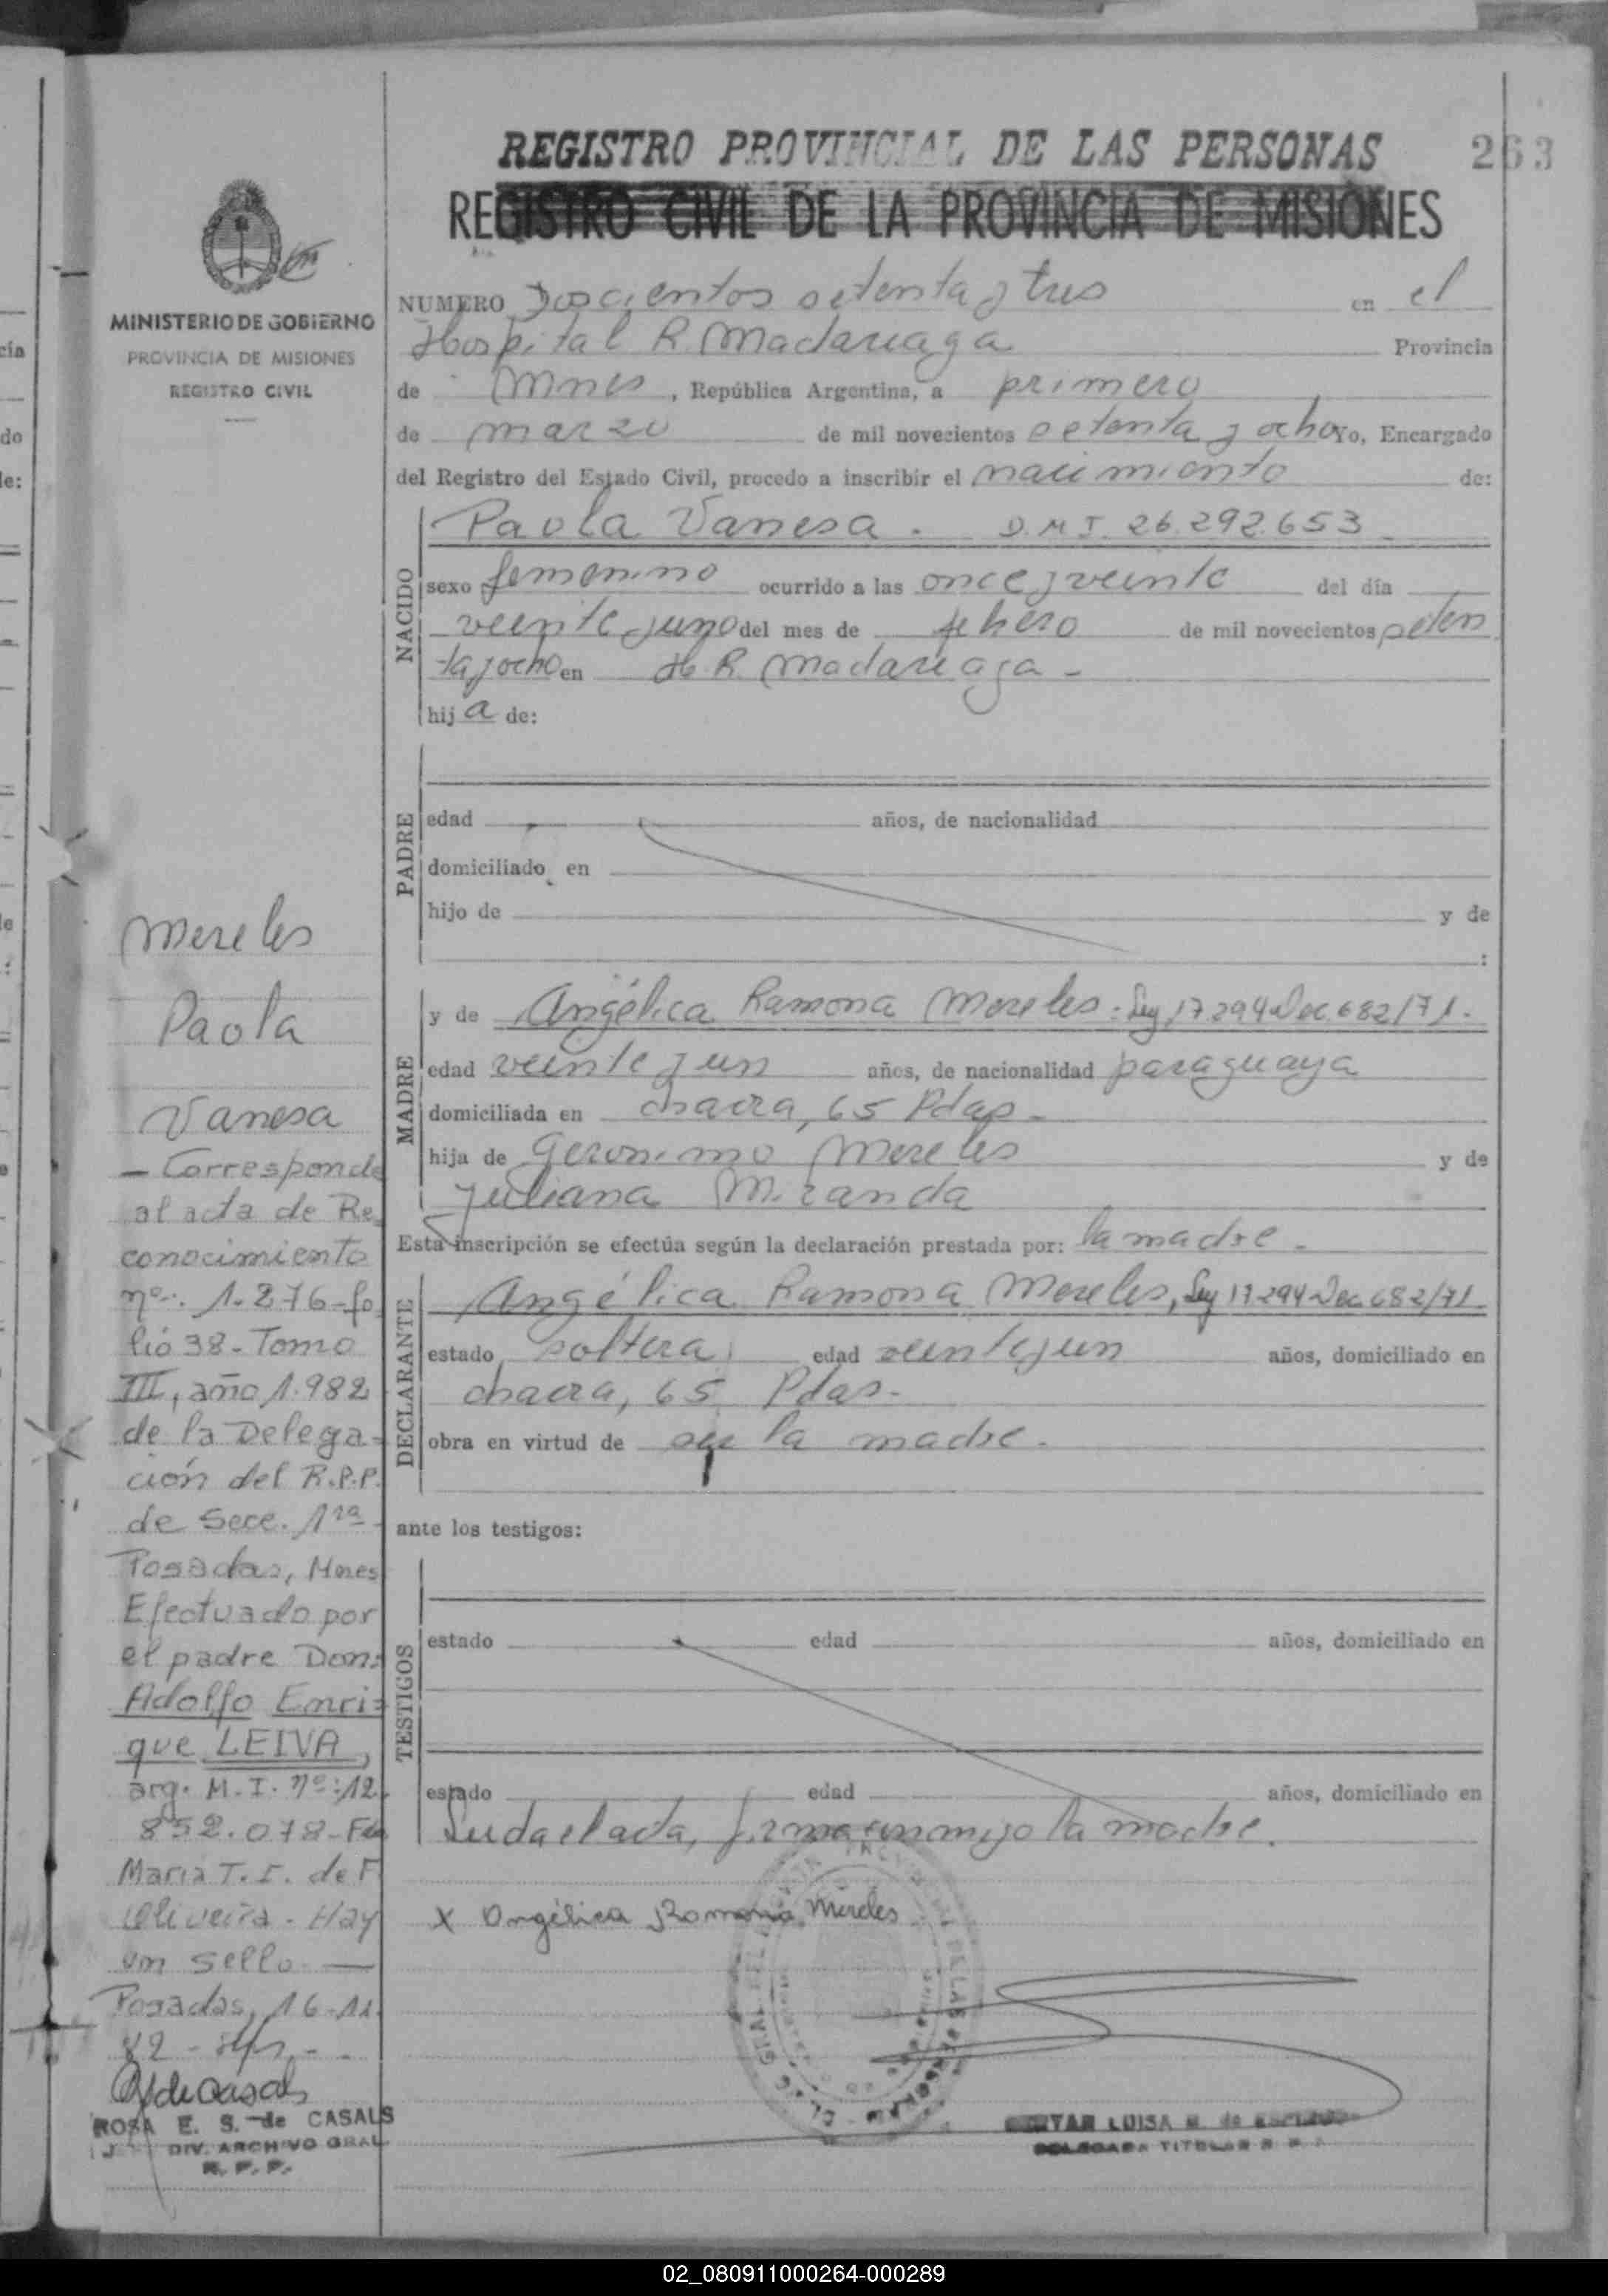 REGISTRO PROVINCIAL DE LAS PERSONAS
263
REGISTRO CIVIL DE LA PROVINCIA DE MISIONES
MINISTERIO DE GOBIERNO
PROVINCIA DE MISIONES
REGISTRO CIVIL
NUMERO Doscientos setenta y tres en el
Hospital R. Madariaga Provincia
de Mnes, República Argentina, a primero
de marzo de mil novecientos setenta y ocho Yo, Encargado
del Registro del Estado Civil, procedo a inscribir el nacimiento de:
NACIDO
Paola Vanesa. D.M.I. 26.292.653
sexo femenino ocurrido a las once y veinte del día
veinte y uno del mes de febrero de mil novecientos seten
ta y ocho en H. R. Madariaga -
hija de:
PADRE
edad años, de nacionalidad
domiciliado en
hijo de y de
:
MADRE
y de Angélica Ramona Mereles: Ley 17.294 Dec. 682/71.
edad veinte y un años, de nacionalidad paraguaya
domiciliada en chacra, 65 Pdas -
hija de Geronimo Mereles y de
Juliana Miranda
Esta inscripción se efectúa según la declaración prestada por: la madre -
DECLARANTE
Angélica Ramona Mereles, Ley 17.294 Dec. 682/71.
estado soltera, edad veinte y un años, domiciliado en
chacra, 65 Pdas.
obra en virtud de ser la madre.
ante los testigos:
TESTIGOS
estado edad años, domiciliado en
estado edad años, domiciliado en
Leida el acta, firma conmigo la madre.
X Angélica Ramona Mereles
DELEGADA TITULAR R. P. P.
Mereles
Paola
Vanesa
- Corresponde
al acta de Re
conocimiento
nº. 1.276-fo
lio 38-Tomo
III, año 1.982
de la Delega-
ción del R.P.P.
de Secc. 1ra
Posadas, Mnes
Efectuado por
el padre Don:
Adolfo Enri=
que LEIVA,
arg. M.I. nº:12.
852.078-Fdo
Maria T. I. de F.
Oliveira - Hay
un sello. —
Posadas, 16-11.
82 -
R de Casals
ROSA E. S. de CASALS
DIV. ARCHIVO GRAL
R. P. P.
02_080911000264-000289